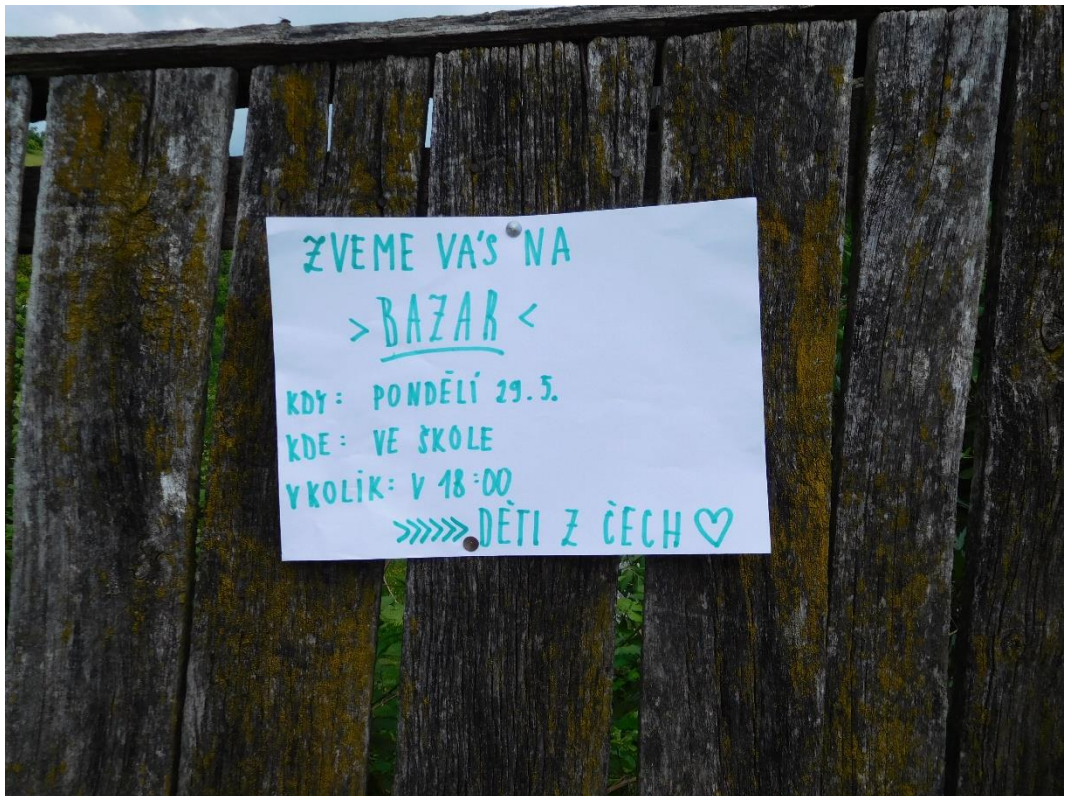 ZVEME VÁS NA
> BAZAR <
KDY: PONDĚLÍ 29.5.
KDE: VE ŠKOLE
V KOLIK: V 18:00
>>>>>> DĚTI Z ČECH ♡